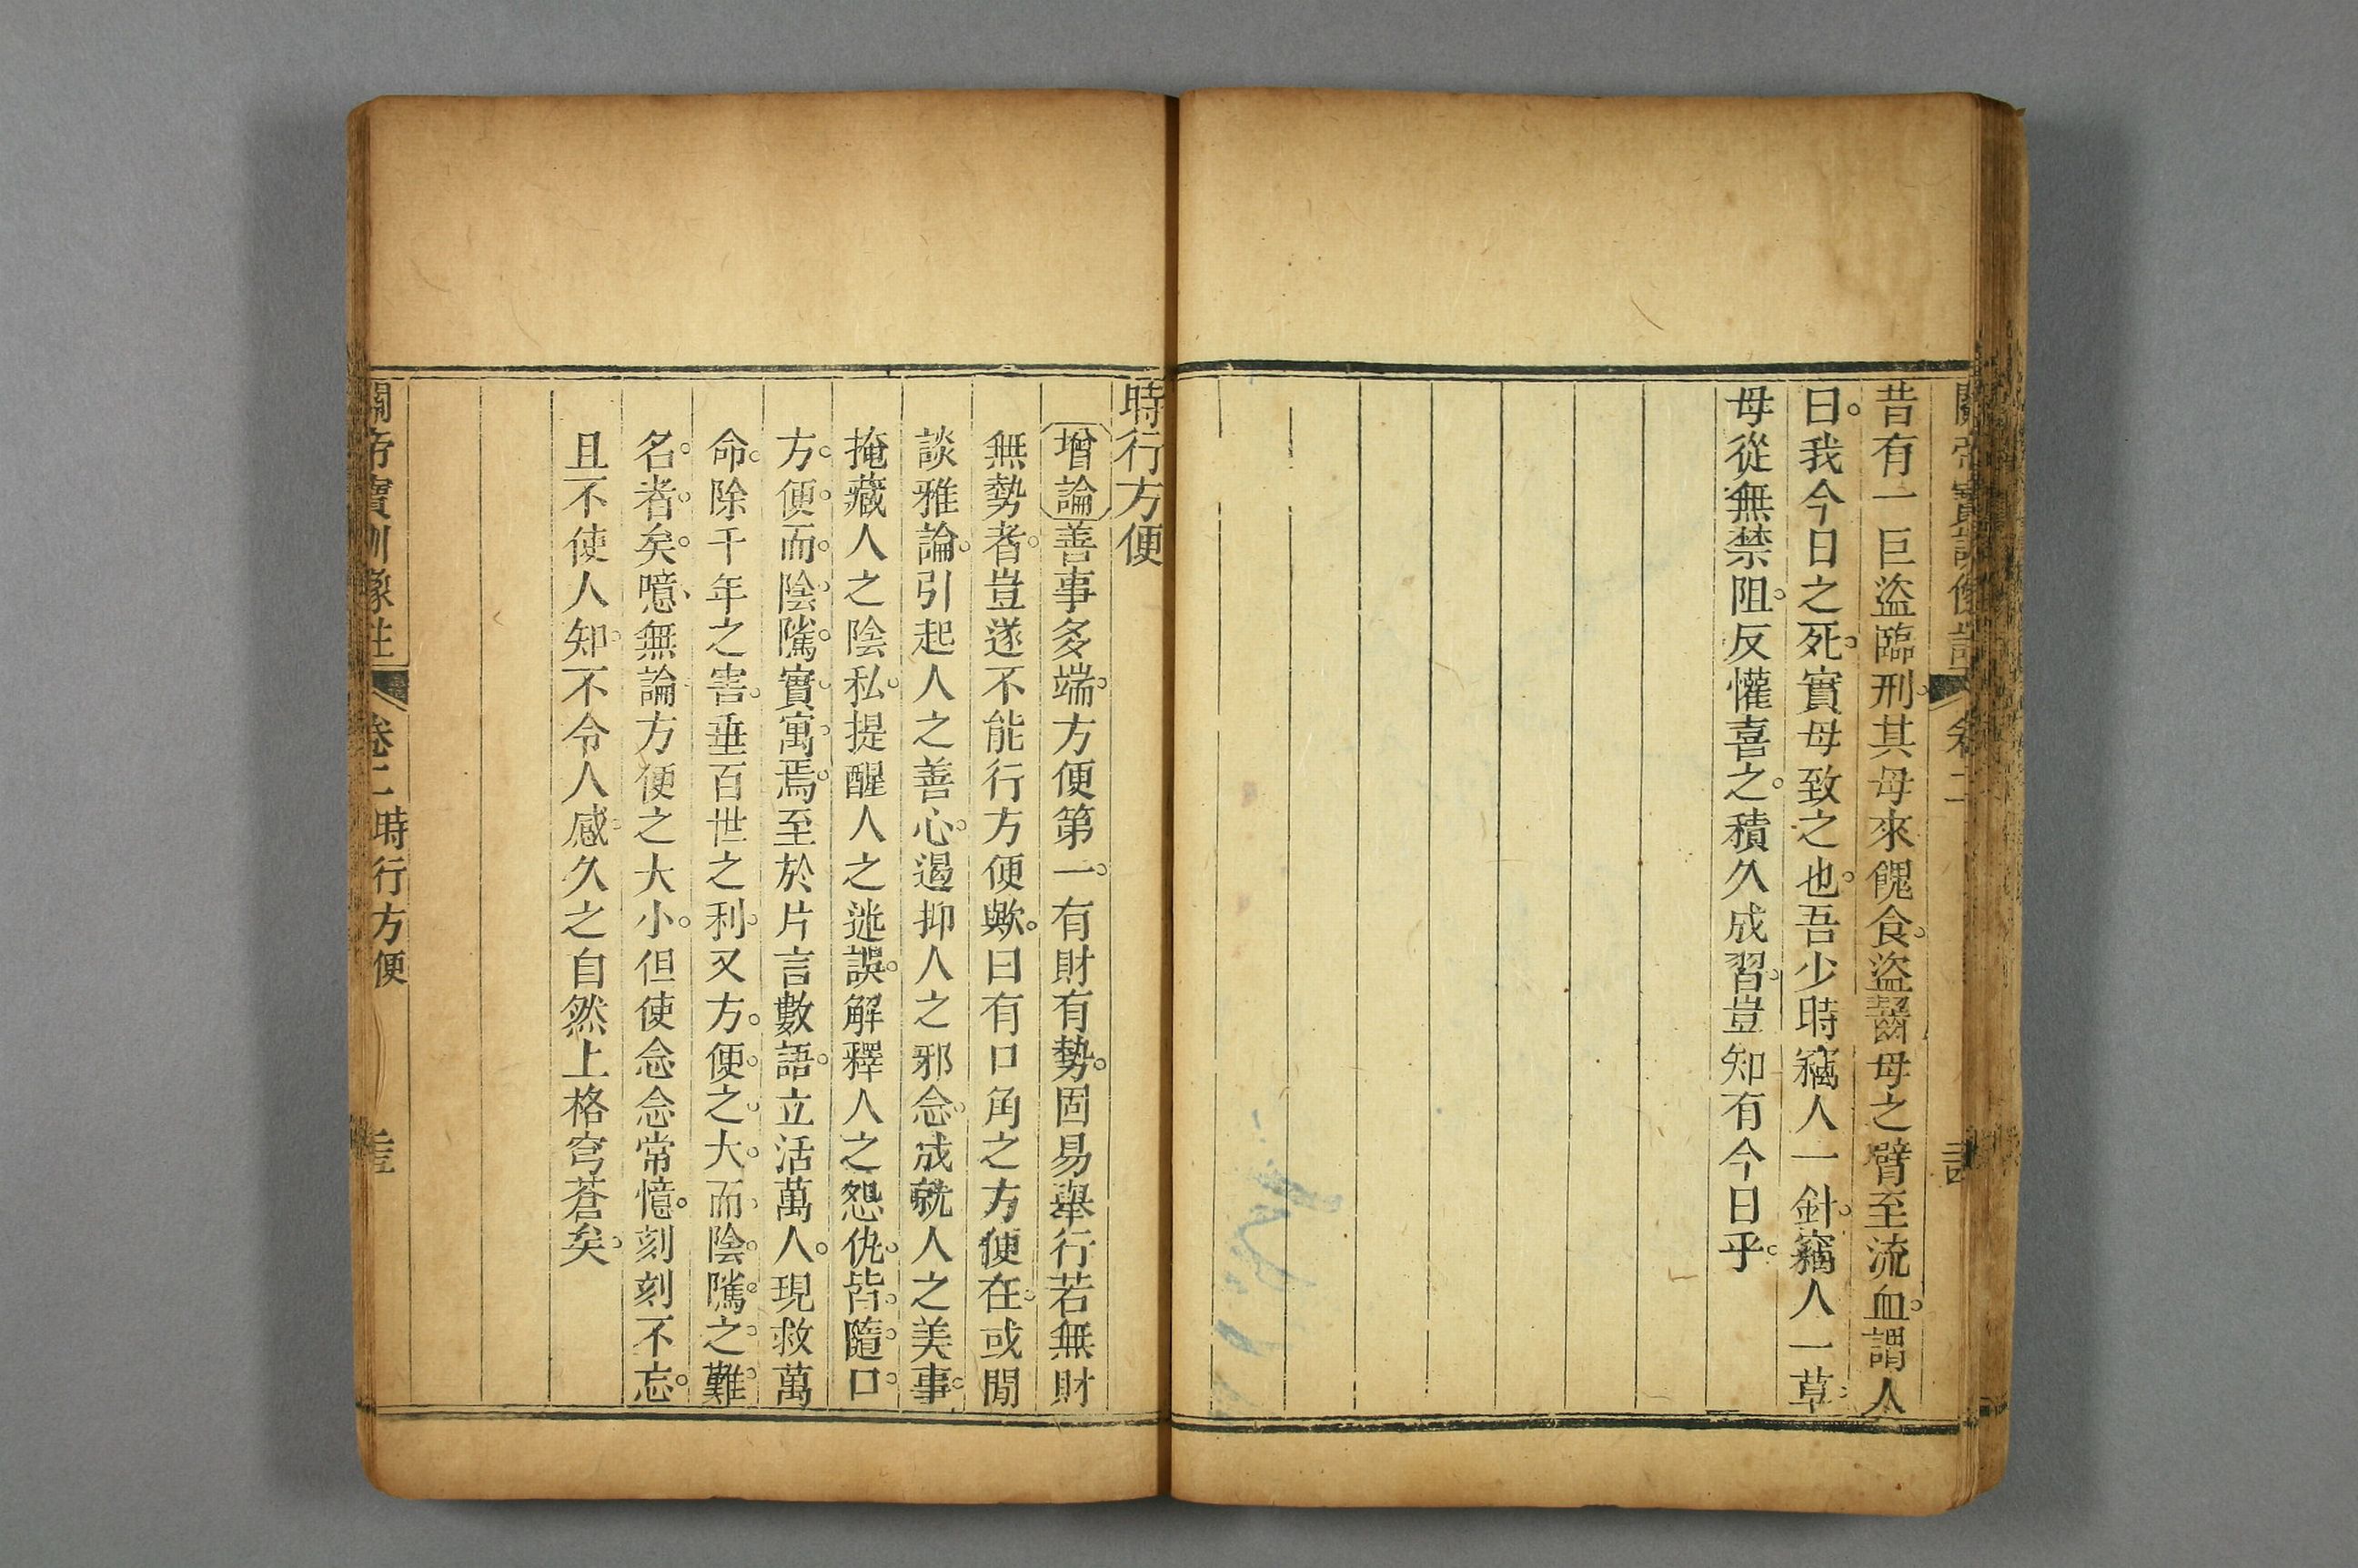 昔有一巨盜臨刑其母來餽食盜齧母之臂至流血謂人
曰我今日之死實母致之也吾少時竊人一針竊人一草
母從無禁阻反懽喜之積久成習豈知有今日乎
時行方便
增論善事多端方便第一有財有勢固易舉行若無財
無勢者豈遂不能行方便歟曰有口角之方便在或閒
談雅論引起人之善心遏抑人之邪念成就人之美事
掩藏人之陰私提醒人之迷誤解釋人之怨仇皆隨口
方便而陰隲實寓焉至於片言數語立活萬人現救萬
命除千年之害垂百世之利又方便之大而陰隲之難
名者矣噫無論方便之大小但使念念常憶刻刻不忘
且不使人知不令人感久之自然上格穹蒼矣
關帝寶訓像註 卷二 時行方便